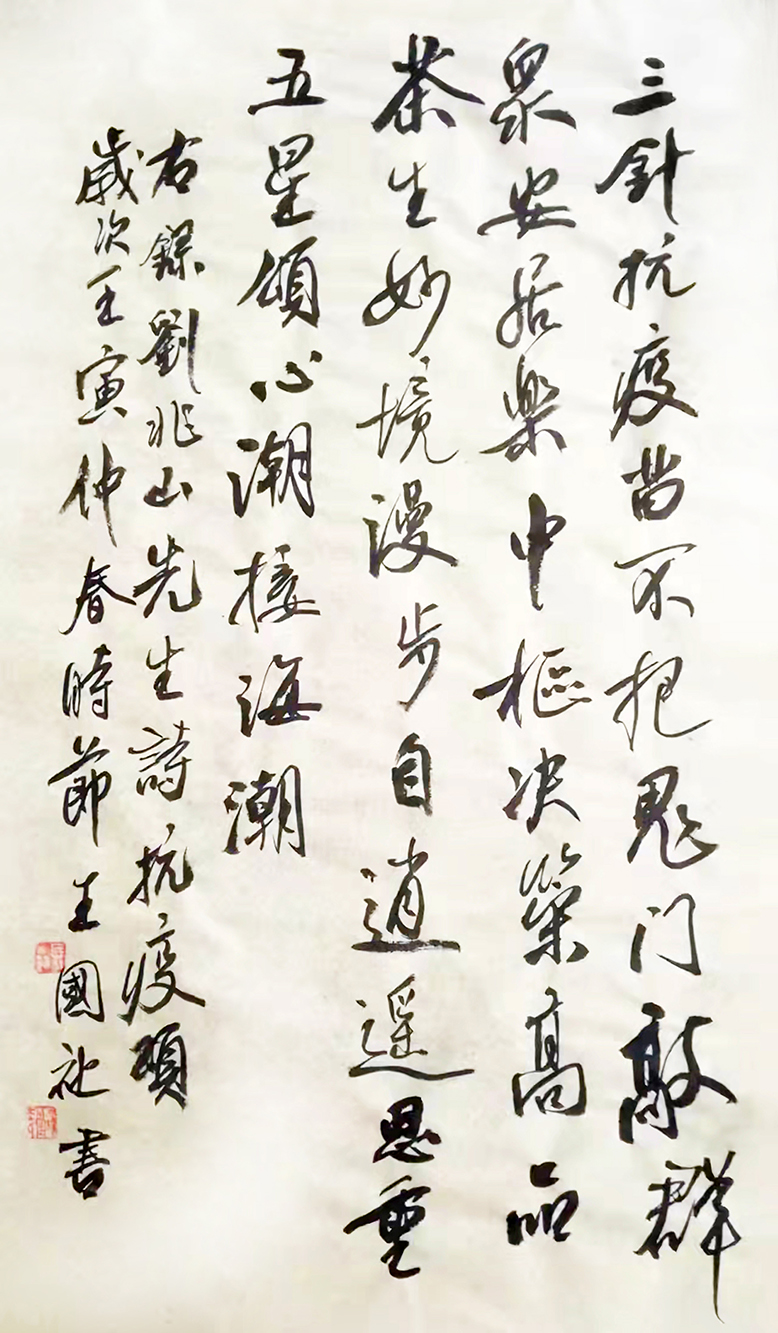 三針抗疫苗不把鬼门敲群
衆安居樂中樞决策高品
茶生妙境漫步自逍遥恩重
五星頌心潮接海潮
右録劉兆山先生詩抗疫頌
歲次壬寅仲春時節王國祉書